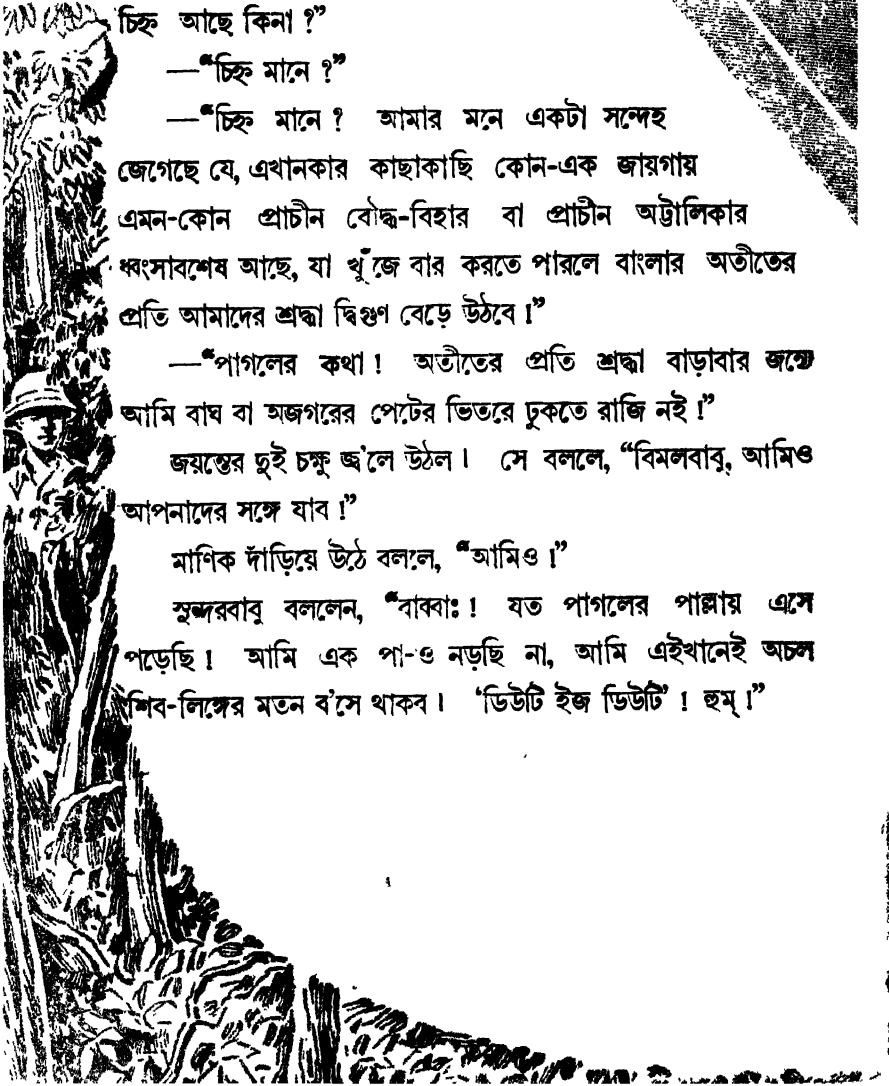 চিহ্ন আছে কিনা ?”
—“চিহ্ন মানে ?”
—“চিহ্ন মানে ? আমার মনে একটা সন্দেহ
জেগেছে যে, এখানকার কাছাকাছি কোন-এক জায়গায়
এমন-কোন প্রাচীন বৌদ্ধ-বিহার বা প্রাচীন অট্টালিকার
ধ্বংসাবশেষ আছে, যা খুঁজে বার করতে পারলে বাংলার অতীতের
প্রতি আমাদের শ্রদ্ধা দ্বিগুণ বেড়ে উঠবে ।”
—“পাগলের কথা ! অতীতের প্রতি শ্রদ্ধা বাড়াবার জন্যে
আমি বাঘ বা অজগরের পেটের ভিতরে ঢুকতে রাজি নই !”
জয়ন্তের দুই চক্ষু জ্ব’লে উঠল । সে বললে, “বিমলবাবু, আমিও
আপনাদের সঙ্গে যাব !”
মাণিক দাঁড়িয়ে উঠে বললে, “আমিও !”
সুন্দরবাবু বললেন, “বাব্বাঃ ! যত পাগলের পাল্লায় এসে
পড়েছি ! আমি এক পা-ও নড়ছি না, আমি এইখানেই অচল
শিব-লিঙ্গের মতন ব’সে থাকব । ‘ডিউটি ইজ ডিউটি’ ! হুম্ !”